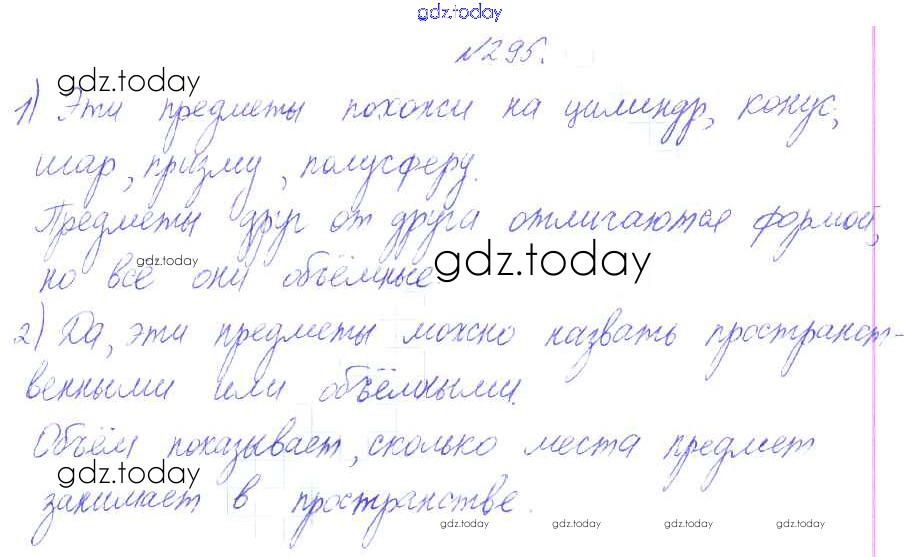 gdz.today
№295.
gdz.today
1) Эти предметы похожи на цилиндр, конус,
шар, призму, полусферу.
Предметы друг от друга отличаются формой,
но всё они объёмные.
gdz.today
gdz.today
2) Да, эти предметы можно назвать пространст-
венными или объёмными.
Объём показывает, сколько места предмет
gdz.today
занимает в пространстве.
gdz.today gdz.today gdz.today gdz.today